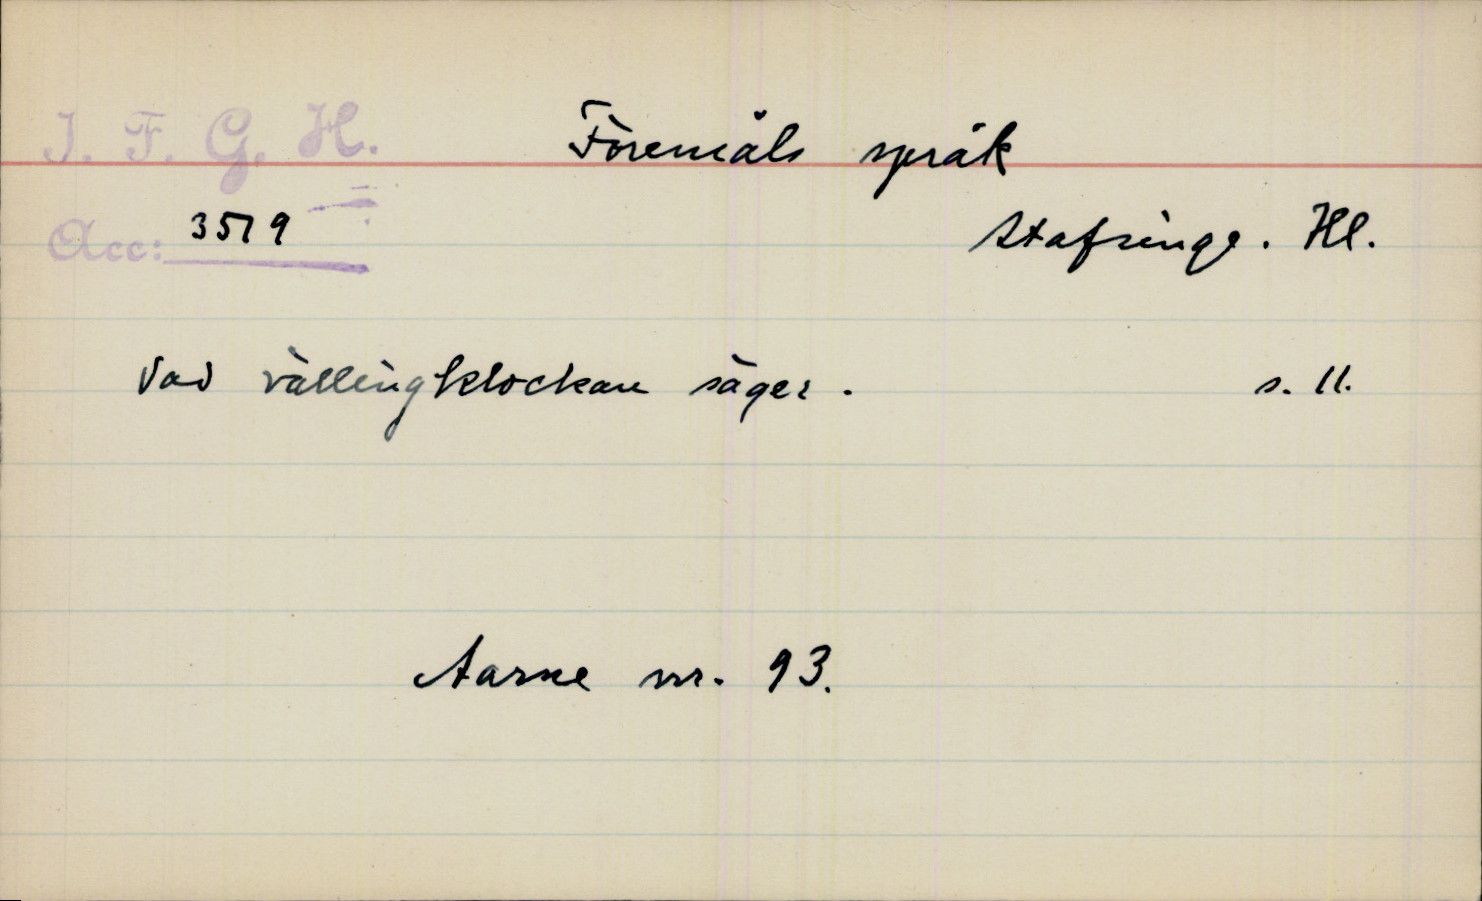 I. F. G. H.
Föremåls språk
Acc: 3579
Stafsinge. Hl.
Vad vällingklockan säger.
s. 11.
Aarne nr. 93.